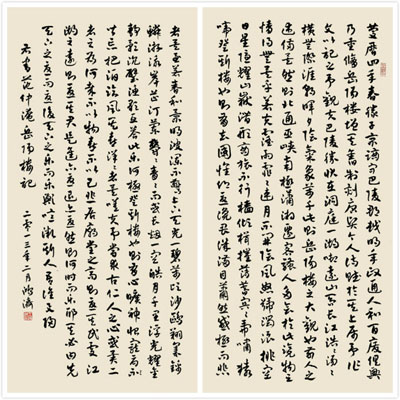 慶曆四年春滕子京謫守巴陵郡越明年政通人和百廢俱興
乃重修岳陽樓增其舊制刻唐賢今人詩賦於其上屬予作
文以記之予觀夫巴陵勝狀在洞庭一湖銜遠山吞長江浩浩湯湯
橫無際涯朝暉夕陰氣象萬千此則岳陽樓之大觀也前人之
述備矣然則北通巫峽南極瀟湘遷客騷人多會於此覽物之
情得無異乎若夫霪雨霏霏連月不開陰風怒號濁浪排空
日星隱耀山嶽潛形商旅不行檣傾楫摧薄暮冥冥虎嘯猿
啼登斯樓也則有去國懷鄉憂讒畏譏滿目蕭然感極而悲
者矣至若春和景明波瀾不驚上下天光一碧萬頃沙鷗翔集錦
鱗游泳岸芷汀蘭鬱鬱青青而或長煙一空皓月千里浮光耀金
靜影沉璧漁歌互答此樂何極登斯樓也則有心曠神怡寵辱偕
忘把酒臨風其喜洋洋者矣嗟夫予嘗求古仁人之心或異二
者之為何哉不以物喜不以己悲居廟堂之高則憂其民處江
湖之遠則憂其君是進亦憂退亦憂然則何時而樂耶其必曰先
天下之憂而憂後天下之樂而樂歟噫微斯人吾誰與歸
右書范仲淹岳陽樓記 二〇一三年二月